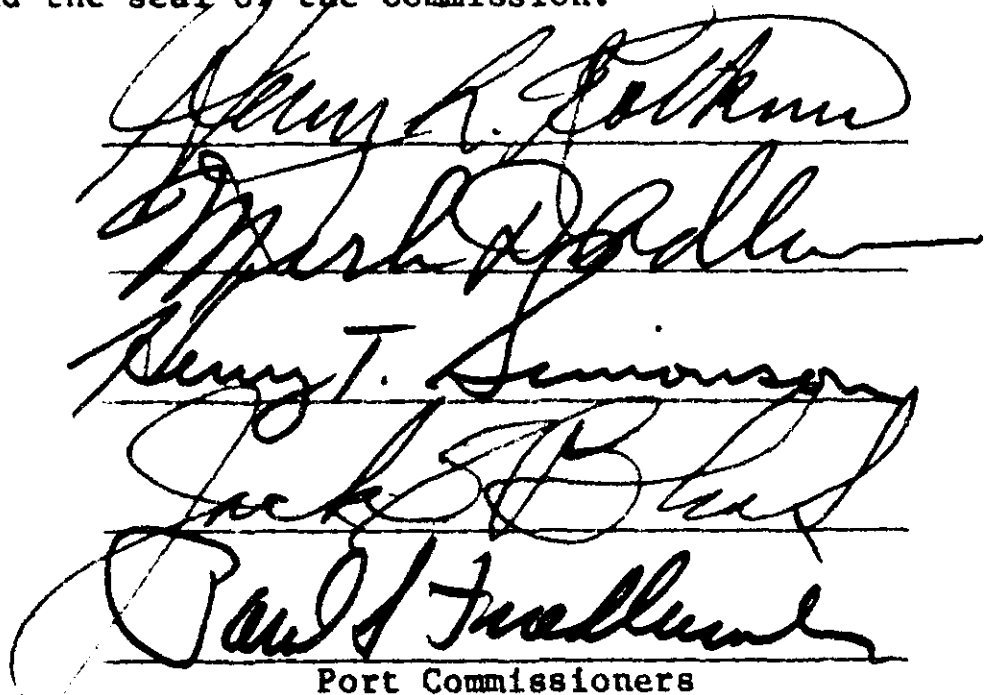 the seal of the Commission.
Henry R. Kotkins
Merle D Adlum
Henry T. Simonson
Jack S Block
Paul S Friedlander
Port Commissioners